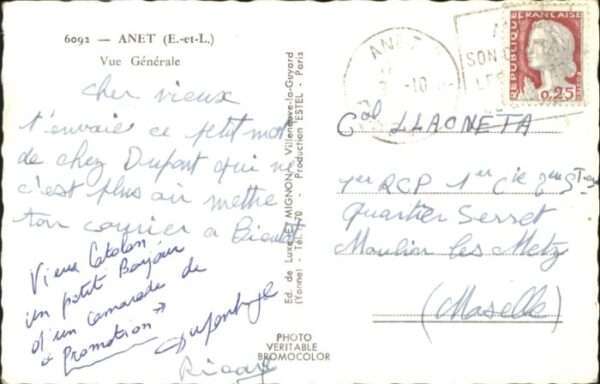 6092 — ANET (E.-et-L.)
Vue Générale
cher vieux
t'envoie ce petit mot
de chez Dupont qui n
c'est plus air mettre
ton courier a Bientot
Vieux Catalan
un petit Bonjour
d'un camarade de
"Promotion"
Ricard
Ed. de Luxe E. MIGNON - Villeneuve-la-Guyard
(Yonne) - Tél. 70 - Production "ESTEL" - Paris
PHOTO
VERITABLE
BROMOCOLOR
ANET
-10
SON
RÉPUBLIQUE FRANÇAISE
0,25
Gal LLAONETA
1er RCP 1er Cie 2me
quartier Serret
Moulin les Metz
(Moselle)